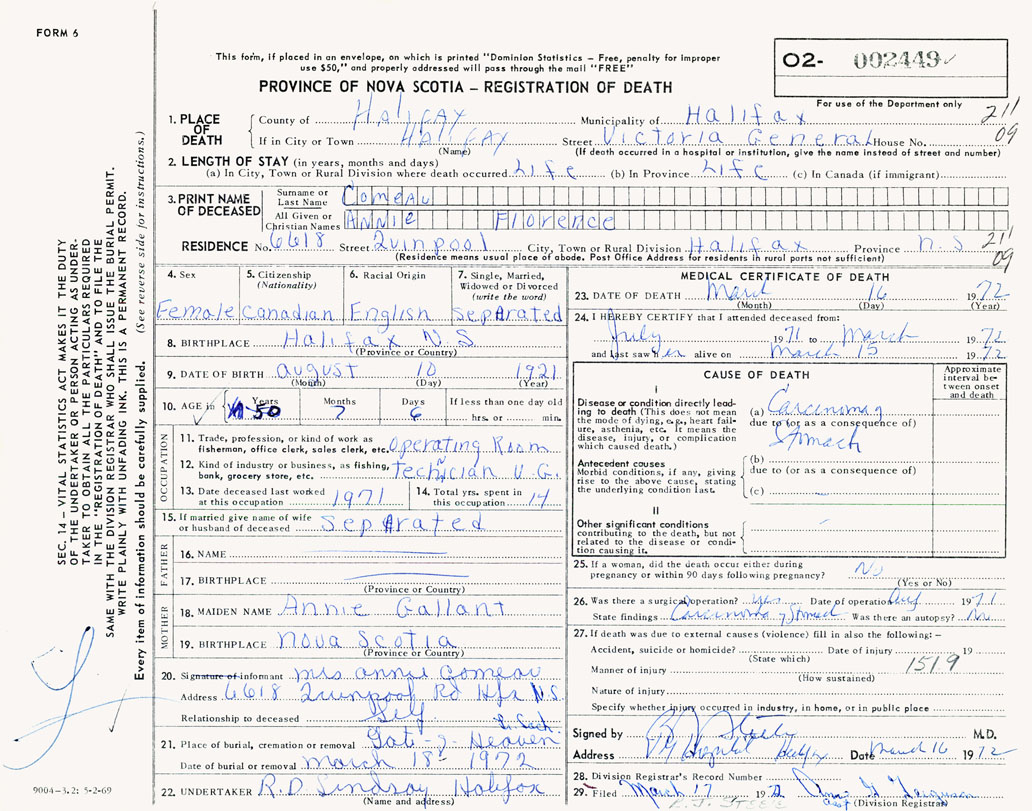 FORM 6
This form, if placed in an envelope, on which is printed "Dominion Statistics – Free, penalty for improper
use $50," and properly addressed will pass through the mail "FREE"
PROVINCE OF NOVA SCOTIA – REGISTRATION OF DEATH
02- 002449
For use of the Department only
211
09
1. PLACE OF DEATH
County of Halifax Municipality of Halifax
If in City or Town Halifax Street Victoria General House No.
(Name) (If death occurred in a hospital or institution, give the name instead of street and number)
2. LENGTH OF STAY (in years, months and days)
(a) In City, Town or Rural Division where death occurred Life (b) In Province Life (c) In Canada (if immigrant)
3. PRINT NAME OF DECEASED
Surname or Last Name Comeau
All Given or Christian Names Annie Florence
RESIDENCE No. 6618 Street Quinpool City, Town or Rural Division Halifax Province N.S
(Residence means usual place of abode. Post Office Address for residents in rural parts not sufficient)
211
09
4. Sex Female
5. Citizenship (Nationality) Canadian
6. Racial Origin English
7. Single, Married, Widowed or Divorced (write the word) Separated
8. BIRTHPLACE Halifax N.S
(Province or Country)
9. DATE OF BIRTH August 10 1921
(Month) (Day) (Year)
10. AGE in Years 50 Months 7 Days 6 If less than one day old hrs. or min.
OCCUPATION
11. Trade, profession, or kind of work as fisherman, office clerk, sales clerk, etc. Operating Room
12. Kind of industry or business, as fishing, bank, grocery store, etc. Technician V.G.
13. Date deceased last worked at this occupation 1971
14. Total yrs. spent in this occupation 14
15. If married give name of wife or husband of deceased Separated
FATHER
16. NAME
17. BIRTHPLACE
(Province or Country)
MOTHER
18. MAIDEN NAME Annie Gallant
19. BIRTHPLACE Nova Scotia
(Province or Country)
20. Signature of informant Mrs. Annie Comeau
Address 6618 Quinpool Rd Hfx N.S.
Relationship to deceased Self
21. Place of burial, cremation or removal Gate of Heaven
Date of burial or removal March 18 1972
22. UNDERTAKER R.D Lindsay Halifax
(Name and address)
MEDICAL CERTIFICATE OF DEATH
23. DATE OF DEATH March 16 1972
(Month) (Day) (Year)
24. I HEREBY CERTIFY that I attended deceased from:
July 1971 to March 1972
and last saw her alive on March 15 1972
CAUSE OF DEATH
Approximate interval between onset and death
I
Disease or condition directly leading to death (This does not mean the mode of dying, e.g., heart failure, asthenia, etc. It means the disease, injury, or complication which caused death.)
(a) Carcinoma of
due to (or as a consequence of)
Stomach
Antecedent causes
Morbid conditions, if any, giving rise to the above cause, stating the underlying condition last.
(b)
due to (or as a consequence of)
(c)
II
Other significant conditions contributing to the death, but not related to the disease or condition causing it.
25. If a woman, did the death occur either during pregnancy or within 90 days following pregnancy? No
(Yes or No)
26. Was there a surgical operation? Yes Date of operation July 1971
State findings Carcinoma of Stomach Was there an autopsy? No
27. If death was due to external causes (violence) fill in also the following: –
Accident, suicide or homicide? Date of injury 19
(State which)
Manner of injury 151.9
(How sustained)
Nature of injury
Specify whether injury occurred in industry, in home, or in public place
Signed by M.D.
Address VG Hospital Halifax Date March 16 1972
28. Division Registrar's Record Number
29. Filed March 17 1972
(Division Registrar)
SEC. 14 – VITAL STATISTICS ACT MAKES IT THE DUTY
OF THE UNDERTAKER OR PERSON ACTING AS UNDER-
TAKER TO OBTAIN ALL THE PARTICULARS REQUIRED
IN THE "REGISTRATION OF DEATH" AND TO FILE THE
SAME WITH THE DIVISION REGISTRAR WHO SHALL ISSUE THE BURIAL PERMIT.
WRITE PLAINLY WITH UNFADING INK. THIS IS A PERMANENT RECORD.
Every item of information should be carefully supplied. (See reverse side for instructions.)
9004–3.2: 5-2-69